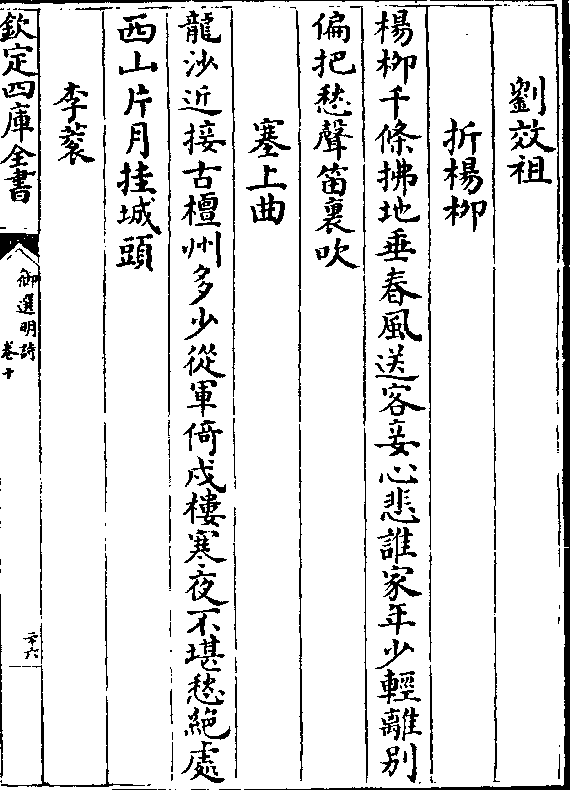 劉效祖
折楊柳
楊柳千條拂地垂春風送客妾心悲誰家年少輕離别
偏把愁聲笛裏吹
塞上曲
龍沙近接古檀州多少從軍倚戍樓寒夜不堪愁絶處
西山片月挂城頭
李蓘
欽定四庫全書
御選明詩
卷十
二十六